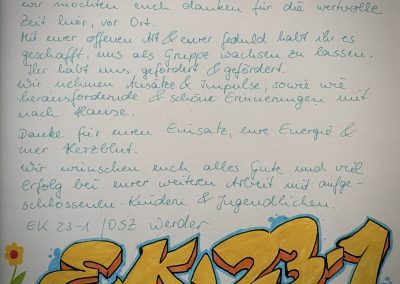 wir möchten euch danken für die wertvolle
Zeit hier, vor Ort.
Mit eurer offenen Art & eurer Geduld habt ihr es
geschafft, uns als Gruppe wachsen zu lassen.
Ihr habt uns gefordert & gefördert.
Wir nehmen Ansätze & Impulse, sowie wie
herausfordernde & schöne Erinnerungen mit
nach Hause.
Danke für euren Einsatz, eure Energie &
euer Herzblut.
Wir wünschen euch alles Gute und viel
Erfolg bei eurer weiteren Arbeit mit aufge-
schlossenen Kindern & Jugendlichen.
EK 23-1 / OSZ Werder
EK 23-1